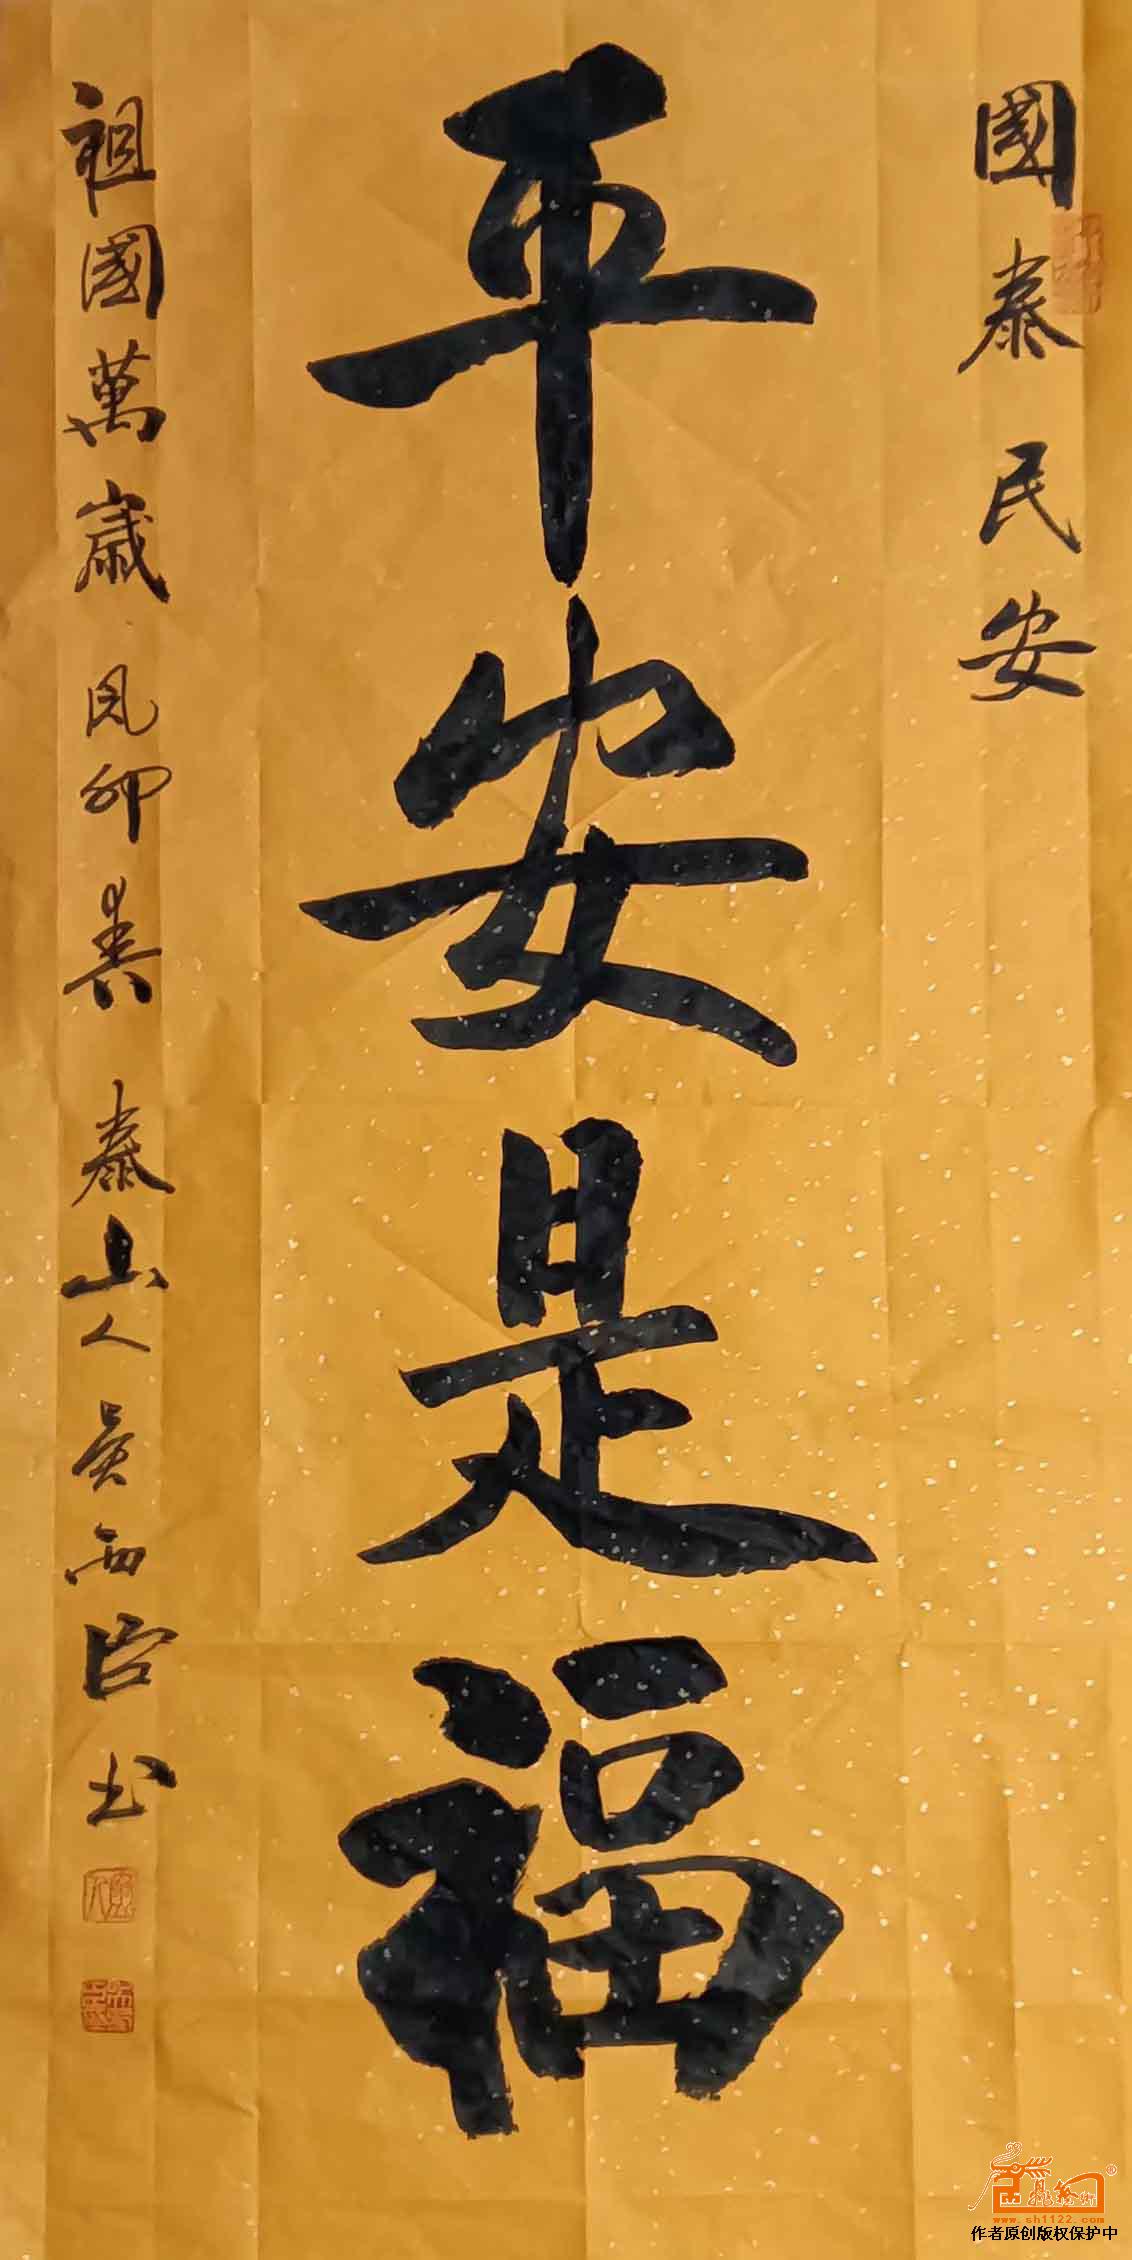 國泰民安
平安是福
祖國萬歲 癸卯春 泰山人 吳西臣书
www.sh1122.com
作者原创版权保护中